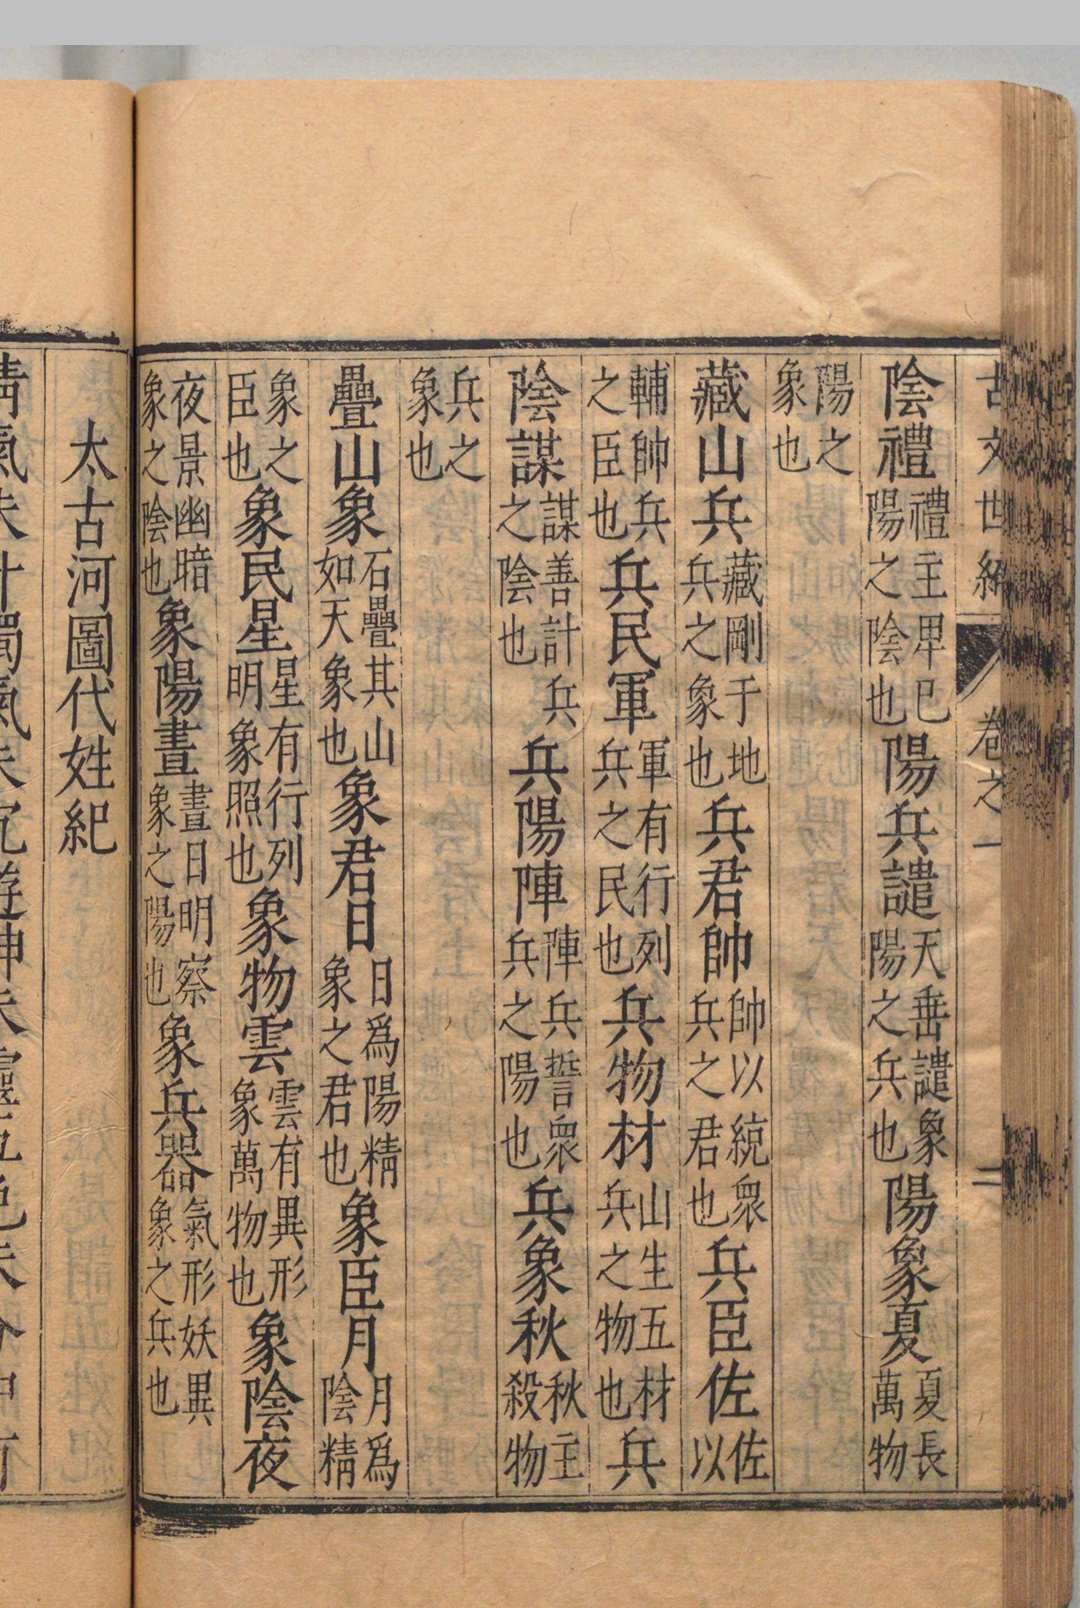 古文世編 卷之一 二
陰禮禮主卑巳陽之陰也陽兵譴天垂譴象陽之兵也陽象夏夏長萬物
陽之象也
藏山兵藏剛于地兵之象也兵君帥帥以統衆兵之君也兵臣佐佐以
輔帥兵之臣也兵民軍軍有行列兵之民也兵物材山生五材兵之物也兵
陰謀謀善計兵之陰也兵陽陣陣兵誓衆兵之陽也兵象秋秋主殺物
兵之象也
疊山象石疊其山如天象也象君日日爲陽精象之君也象臣月月爲陰精
象之臣也象民星星有行列明象照也象物雲雲有異形象萬物也象陰夜
夜景幽暗象之陰也象陽晝晝日明察象之陽也象兵器氣形妖異象之兵也
太古河圖代姓紀
清氣未升濁氣未沉遊神未靈五色未分中有